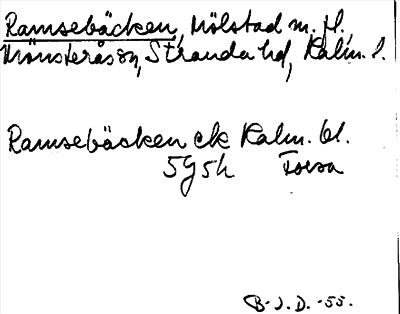 Ramsebäcken, Mölstad m. fl.
Mönsterås sn, Stranda hd, Kalm. l.
Ramsebäcken ek Kalm. bl.
5G5h
B.J.D. -55.